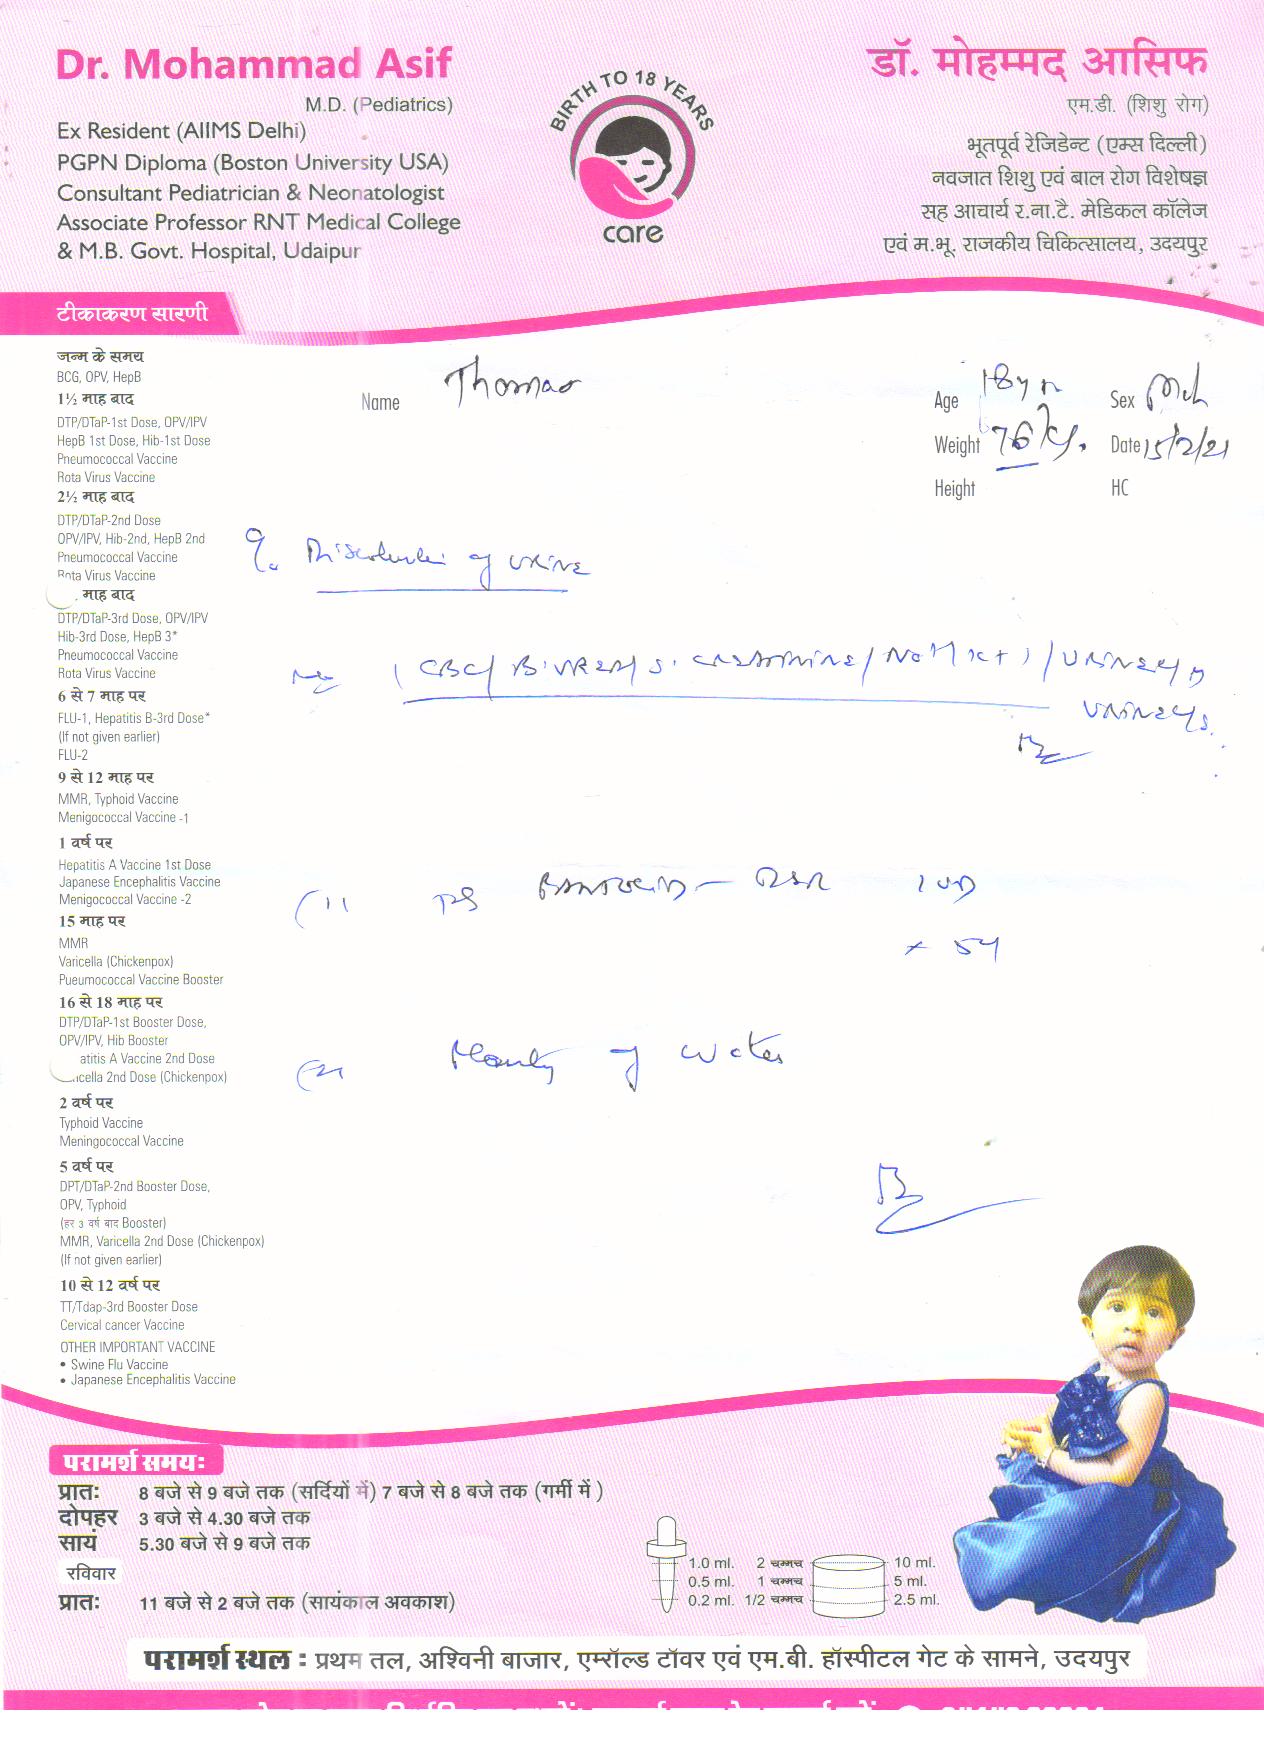 Dr. Mohammad Asif
M.D. (Pediatrics)
Ex Resident (AIIMS Delhi)
PGPN Diploma (Boston University USA)
Consultant Pediatrician & Neonatologist
Associate Professor RNT Medical College
& M.B. Govt. Hospital, Udaipur
BIRTH TO 18 YEARS
care
डॉ. मोहम्मद आसिफ
एम.डी. (शिशु रोग)
भूतपूर्व रेजिडेन्ट (एम्स दिल्ली)
नवजात शिशु एवं बाल रोग विशेषज्ञ
सह आचार्य र.ना.टै. मेडिकल कॉलेज
एवं म.भू. राजकीय चिकित्सालय, उदयपुर
टीकाकरण सारणी
जन्म के समय
BCG, OPV, HepB
1½ माह बाद
DTP/DTaP-1st Dose, OPV/IPV
HepB 1st Dose, Hib-1st Dose
Pneumococcal Vaccine
Rota Virus Vaccine
2½ माह बाद
DTP/DTaP-2nd Dose
OPV/IPV, Hib-2nd, HepB 2nd
Pneumococcal Vaccine
Rota Virus Vaccine
माह बाद
DTP/DTaP-3rd Dose, OPV/IPV
Hib-3rd Dose, HepB 3*
Pneumococcal Vaccine
Rota Virus Vaccine
6 से 7 माह पर
FLU-1, Hepatitis B-3rd Dose*
(If not given earlier)
FLU-2
9 से 12 माह पर
MMR, Typhoid Vaccine
Menigococcal Vaccine -1
1 वर्ष पर
Hepatitis A Vaccine 1st Dose
Japanese Encephalitis Vaccine
Menigococcal Vaccine -2
15 माह पर
MMR
Varicella (Chickenpox)
Pueumococcal Vaccine Booster
16 से 18 माह पर
DTP/DTaP-1st Booster Dose,
OPV/IPV, Hib Booster
atitis A Vaccine 2nd Dose
icella 2nd Dose (Chickenpox)
2 वर्ष पर
Typhoid Vaccine
Meningococcal Vaccine
5 वर्ष पर
DPT/DTaP-2nd Booster Dose,
OPV, Typhoid
(हर 3 वर्ष बाद Booster)
MMR, Varicella 2nd Dose (Chickenpox)
(If not given earlier)
10 से 12 वर्ष पर
TT/Tdap-3rd Booster Dose
Cervical cancer Vaccine
OTHER IMPORTANT VACCINE
• Swine Flu Vaccine
• Japanese Encephalitis Vaccine
Name Thomas
Age 18yr Sex Mch
Weight 76 kg. Date 15/2/21
Height HC
of URINE
CBC/ B.UREA/ S. CREATININE/
Plenty of water
परामर्श समयः
प्रातः 8 बजे से 9 बजे तक (सर्दियों में) 7 बजे से 8 बजे तक (गर्मी में )
दोपहर 3 बजे से 4.30 बजे तक
सायं 5.30 बजे से 9 बजे तक
रविवार
प्रातः 11 बजे से 2 बजे तक (सायंकाल अवकाश)
1.0 ml. 2 चम्मच 10 ml.
0.5 ml. 1 चम्मच 5 ml.
0.2 ml. 1/2 चम्मच 2.5 ml.
परामर्श स्थल : प्रथम तल, अश्विनी बाजार, एम्रॉल्ड टॉवर एवं एम.बी. हॉस्पीटल गेट के सामने, उदयपुर